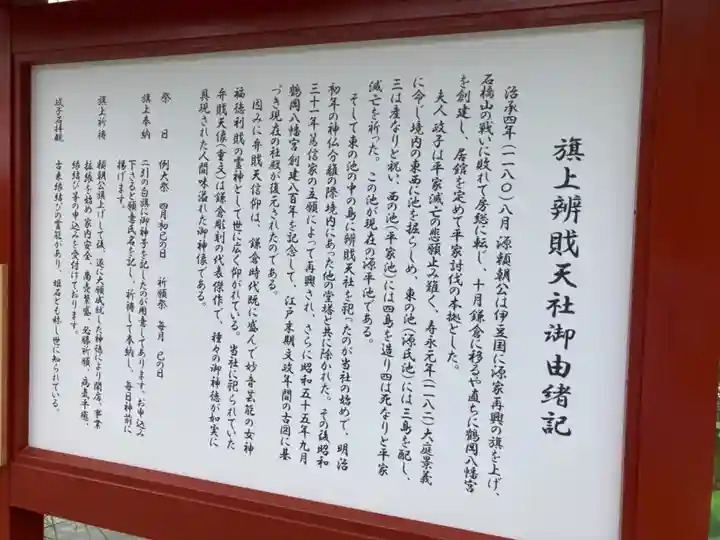 旗上辨財天社御由緒記
治承四年(一一八〇)八月 源頼朝公は伊豆国に源家再興の旗を上げ、
石橋山の戦いに敗れて房総に転じ、十月鎌倉に移るや直ちに鶴岡八幡宮
を創建し、居館を定めて平家討伐の本拠とした。
夫人 政子は平家滅亡の悲願止み難く、寿永元年(一一八二)大庭景義
に命じ境内の東西に池を掘らしめ、東の池(源氏池)には三島を配し、
三は産なりと祝い、西の池(平家池)には四島を造り四は死なりと平家
滅亡を祈った。この池が現在の源平池である。
そして東の池の中の島に辨財天社を祀ったのが当社の始めで、明治
初年の神仏分離の際境内にあった他の堂塔と共に除かれた。その後昭和
三十一年篤信家の立願によって再興され、さらに昭和五十五年九月
鶴岡八幡宮創建八百年を記念して、江戸末期文政年間の古図に基
づき現在の社殿が復元されたのである。
因みに弁財天信仰は、鎌倉時代既に盛んで妙音芸能の女神
福徳利財の霊神として世に広く仰がれている。当社に祀られていた
弁財天像(重文)は鎌倉彫刻の代表傑作で、種々の御神徳が如実に
具現された人間味溢れた御神像である。
祭 日 例大祭 四月初巳の日 祈願祭 毎月 巳の日
旗上奉納 二引の白旗に御神号を記したのが用意してあります。お申込み
下さると願意氏名を記し、祈祷して奉納し、毎日神前に
掲げます。
旗上祈祷 頼朝公旗上げして後、遂に大願成就した神徳により開店、事業
拡張を始め家内安全、商売繁盛、必勝祈願、病気平癒、
縁結び等の申込みを受付けております。
政子石拝観 古来縁結びの霊験があり、姫石とも称し世に知られている。